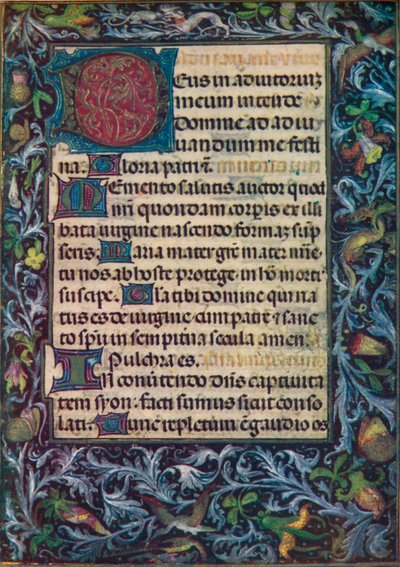 Deus in adiutorium
meum intende
Domine ad adiu
uandum me festi
na. Gloria patri ⁊.
Memento salutis auctor quod
nr̄i quondam corporis ex illi
bata uirgine nascendo formā sūp
seris. Maria mater gr̄e mater mīe
tu nos ab hoste protege in ho᷑ morti᷒
suscipe. Gl̄a tibi domine qui na
tus es de uirgine cum patre ⁊ sanc
to sp̄u in sempit̄na secula amen.
Pulchra es.
In conu̾tendo dn̄s captiuita
tem syon: facti sumus sicut conso
lati. Tunc repletum ē gaudio os